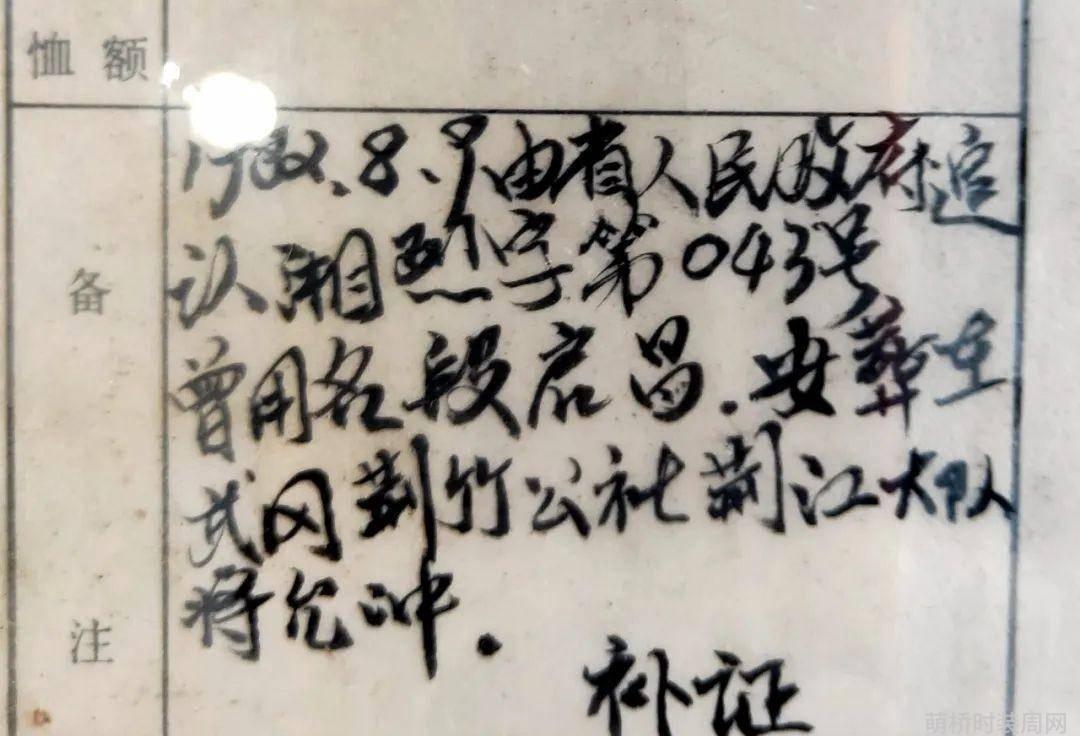 恤额
备注
1982.8.9由省人民政府追
认湘烈字第043号
曾用名段启昌.安葬在
武冈荆竹公社荆江大队
将允冲.
补证
萌桥时装周网